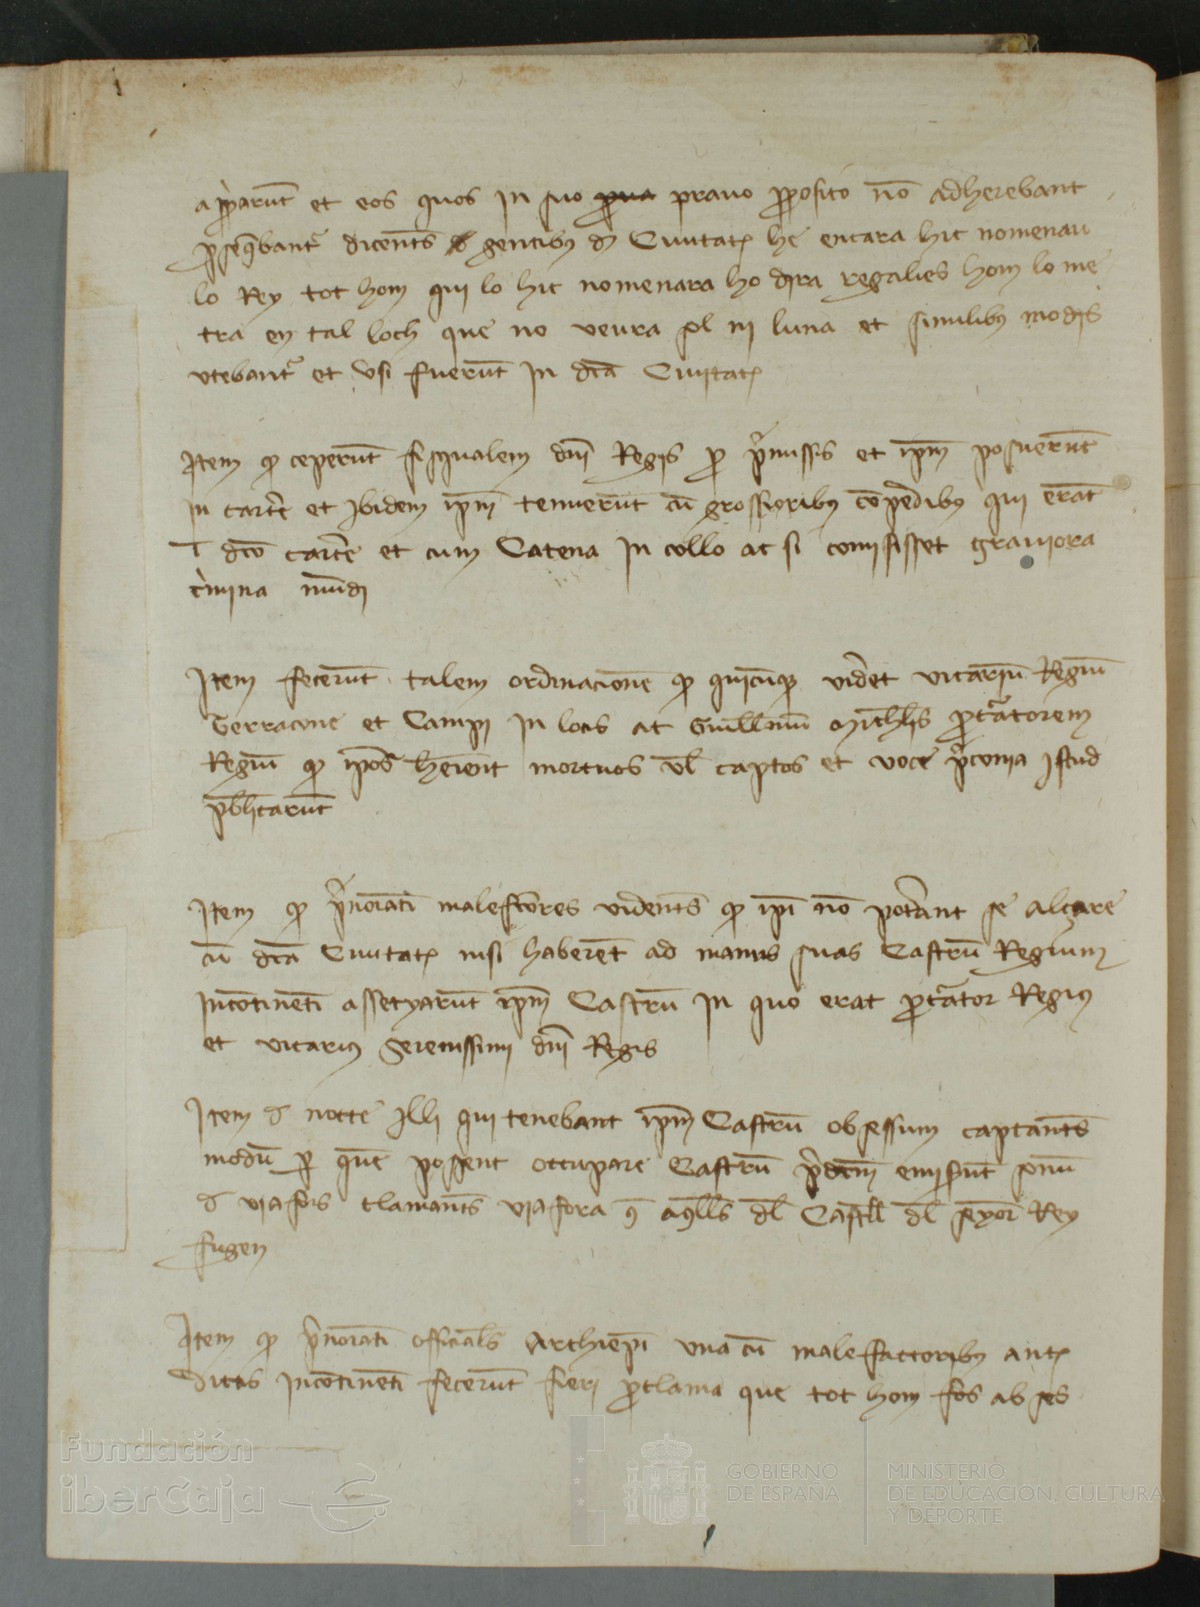 et eos quos in suo prauo pposito no adherebant
psequebant dicents gentibus Ciuitat he encara hic nomenau
lo Rey tot hom qui lo hic nomenara ho dira regalies hom lo me
tra en tal loch que no veura sol ni luna et similibus modis
vtebant et vsi fuerut in dca Ciuitat
Item q ceperut fisqualem dni Regis p pmissis et ipm posuerut
in carcre et ibidem ipm tenuerut cu grossioribus copedibus qui erat
i dco carcre et cum Catena in collo ac si comisisset grauiora
crimina mudi
Item fecerut talem ordinacione q quicuq videret vicariu Regiu
Terracone et Campi in locis ac Guillmu pcuratorem
Regiu q ipos mortuos vl captos et voce pconia istud
pblicarut
Item q pnoiati malefcores vidents q ipi no poterant se alçare
cu dca Ciuitat nisi haberet ad manus suas Castru Regium
Incotineti assetyarut ipm Castru in quo erat pcurator Regius
et vicarius Serenissimi dni Regis
Item d nocte illi qui tenebant ipm Castru obsessum captants
modu p que possent occupare Castru pdcm emiserut sonu
d viafors clamants viafora aqlls dl Castll dl senyor Rey
fugen
Item q pnoiati officials Archiepi vna cu malefactoribus ant
dictis Incotineti fecerut fieri pclama que tot hom fos ab ses
Fundación
iberCaja
GOBIERNO
DE ESPAÑA
MINISTERIO
DE EDUCACIÓN, CULTURA
Y DEPORTE